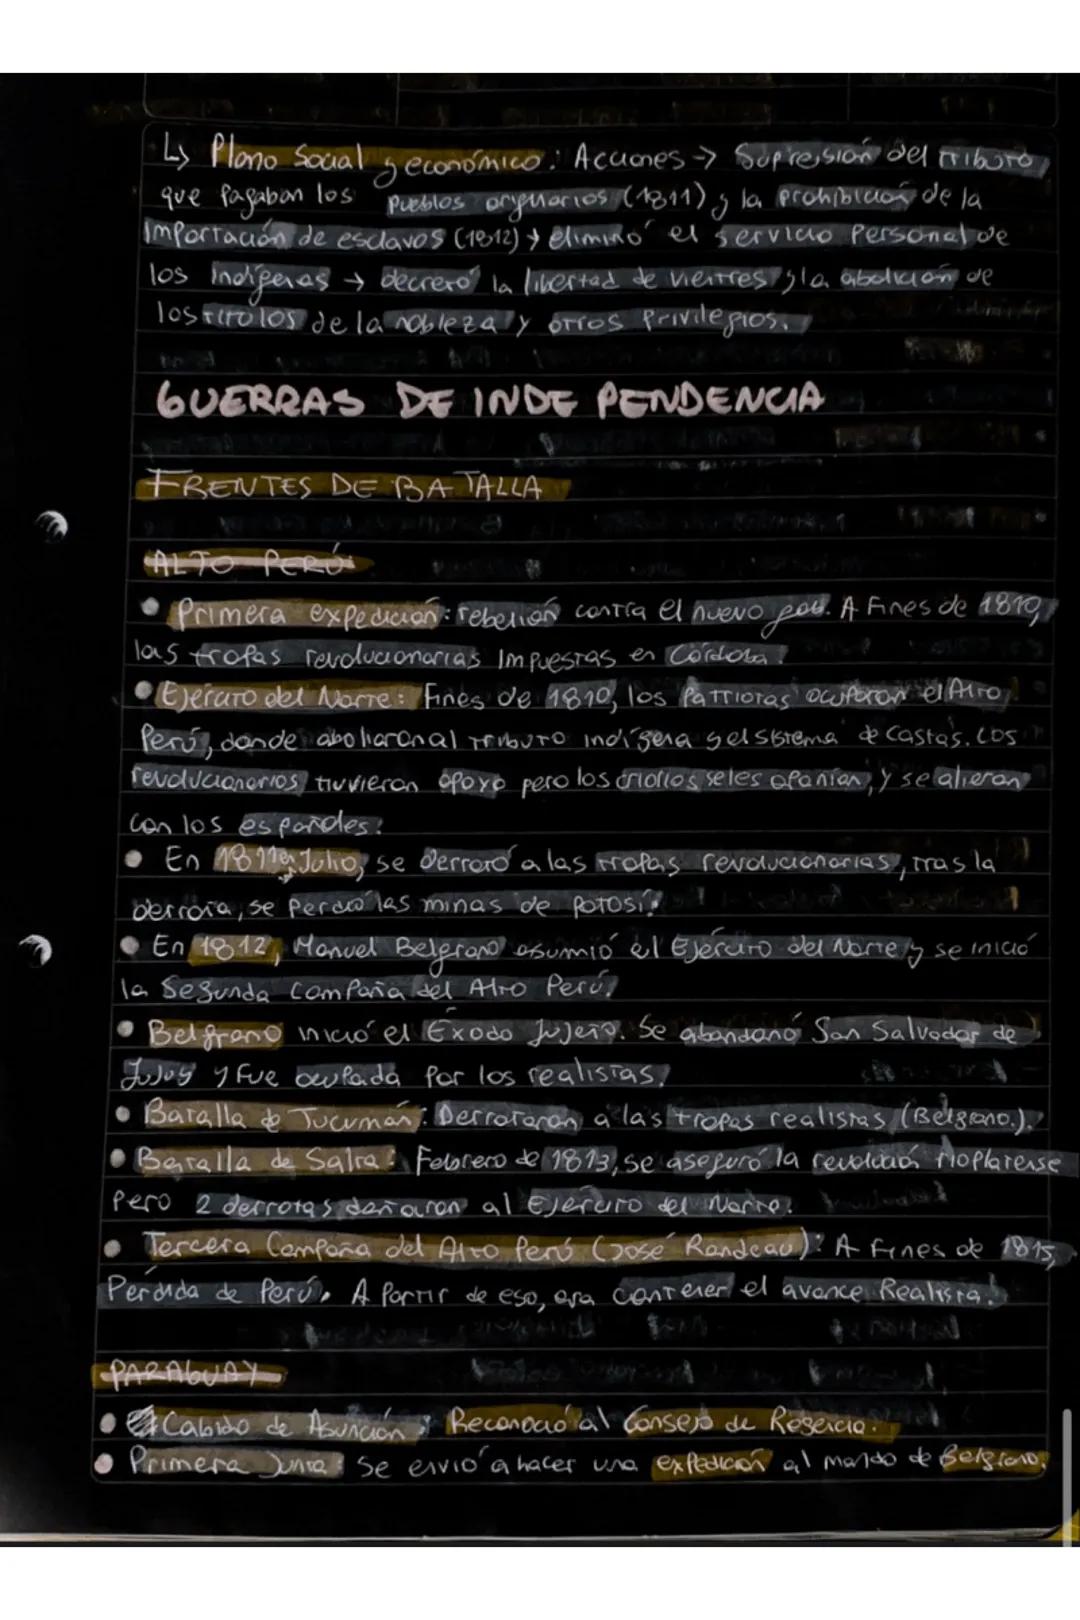 ↳ Plano Social y económico: Acciones → Supresión del tributo
que pagaban los pueblos originarios (1811) y la prohibición de la
importación de esclavos (1812) y eliminó el servicio personal de
los indígenas → decretó la libertad de vientres y la abolición de
los títulos de la nobleza y otros privilegios.
GUERRAS DE INDEPENDENCIA
FRENTES DE BATALLA
ALTO PERÚ
• Primera expedición: rebelión contra el nuevo gob. A fines de 1810,
las tropas revolucionarias impuestas en Córdoba.
• Ejército del Norte: Fines de 1810, los patriotas ocuparon el Alto
Perú, donde aboliaron al tributo indígena y el sistema de castas. Los
revolucionarios tuvieron apoyo pero los criollos se les oponían, y se alieron
con los españoles.
• En 1811 en Julio, se derrotó a las tropas revolucionarias, tras la
derrota, se perdió las minas de Potosí.
• En 1812, Manuel Belgrano asumió el Ejército del Norte y se inició
la Segunda Campaña del Alto Perú.
• Belgrano inició el Exodo Jujeño. Se abandonó San Salvador de
Jujuy y fue ocupada por los realistas.
• Batalla de Tucumán: Derrotaron a las tropas realistas (Belgrano.).
• Batalla de Salta: Febrero de 1813, se aseguró la revolución rioplatense
pero 2 derrotas dañaron al Ejército del Norte.
• Tercera Campaña del Alto Perú (José Rondeau): A fines de 1815,
Perdida de Perú. A partir de eso, era contener el avance Realista.
PARAGUAY
• Cabildo de Asunción: Reconoció al Consejo de Regencia.
• Primera Junta: Se envió a hacer una expedición al mando de Belgrano.